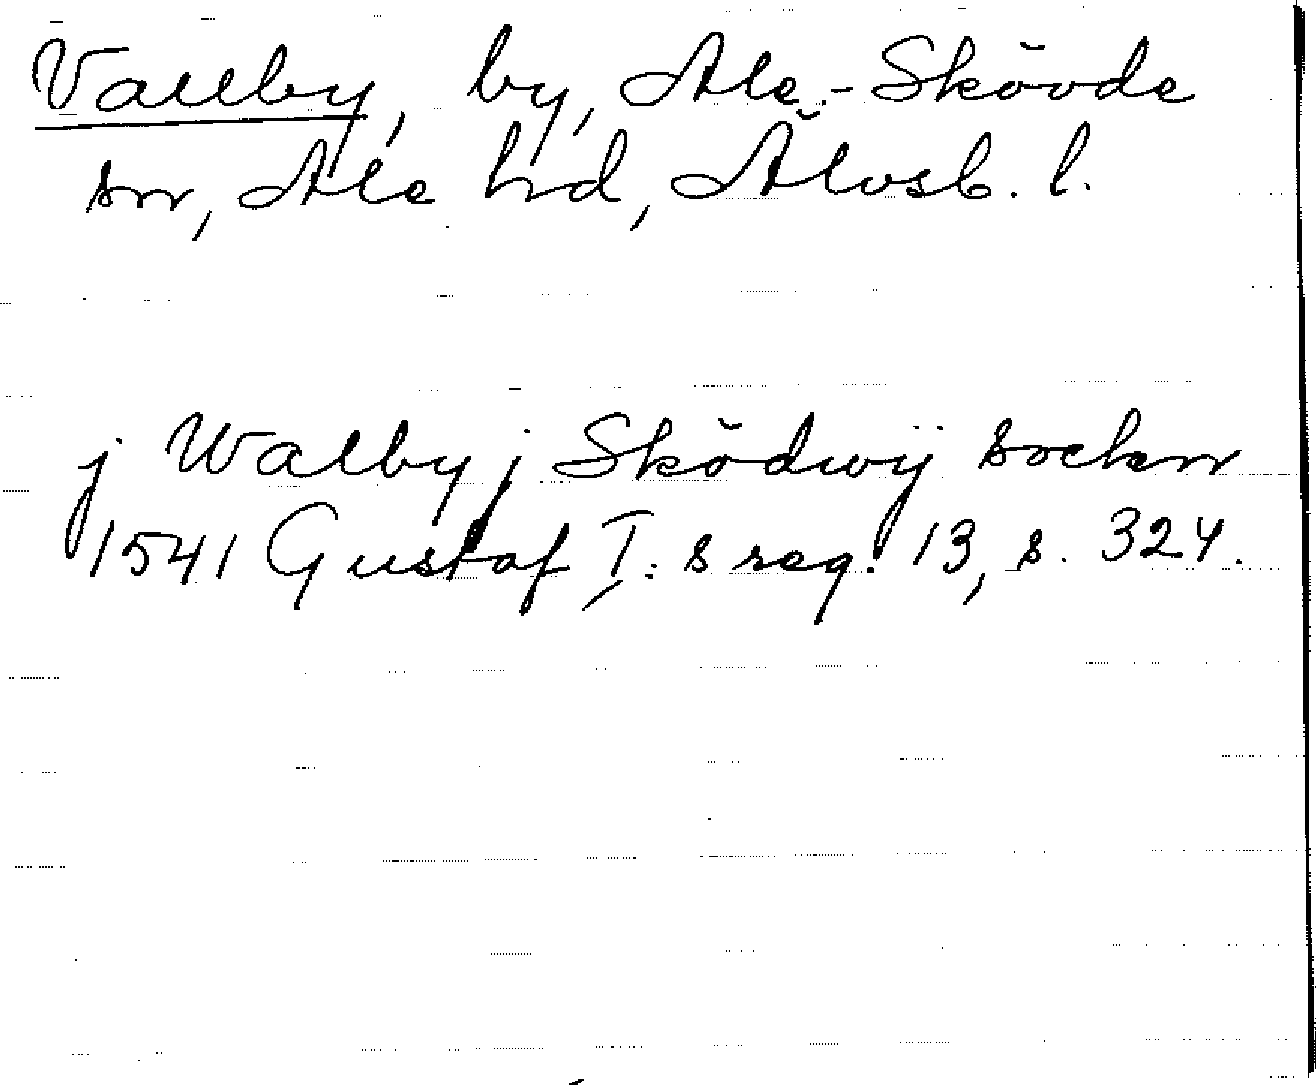 Vallby, by, Ale-Skövde
sn, Ale hd, Älvsb. l.
j Walby j Sködwij sockn
1541 Gustaf I:s reg. 13, s. 324.